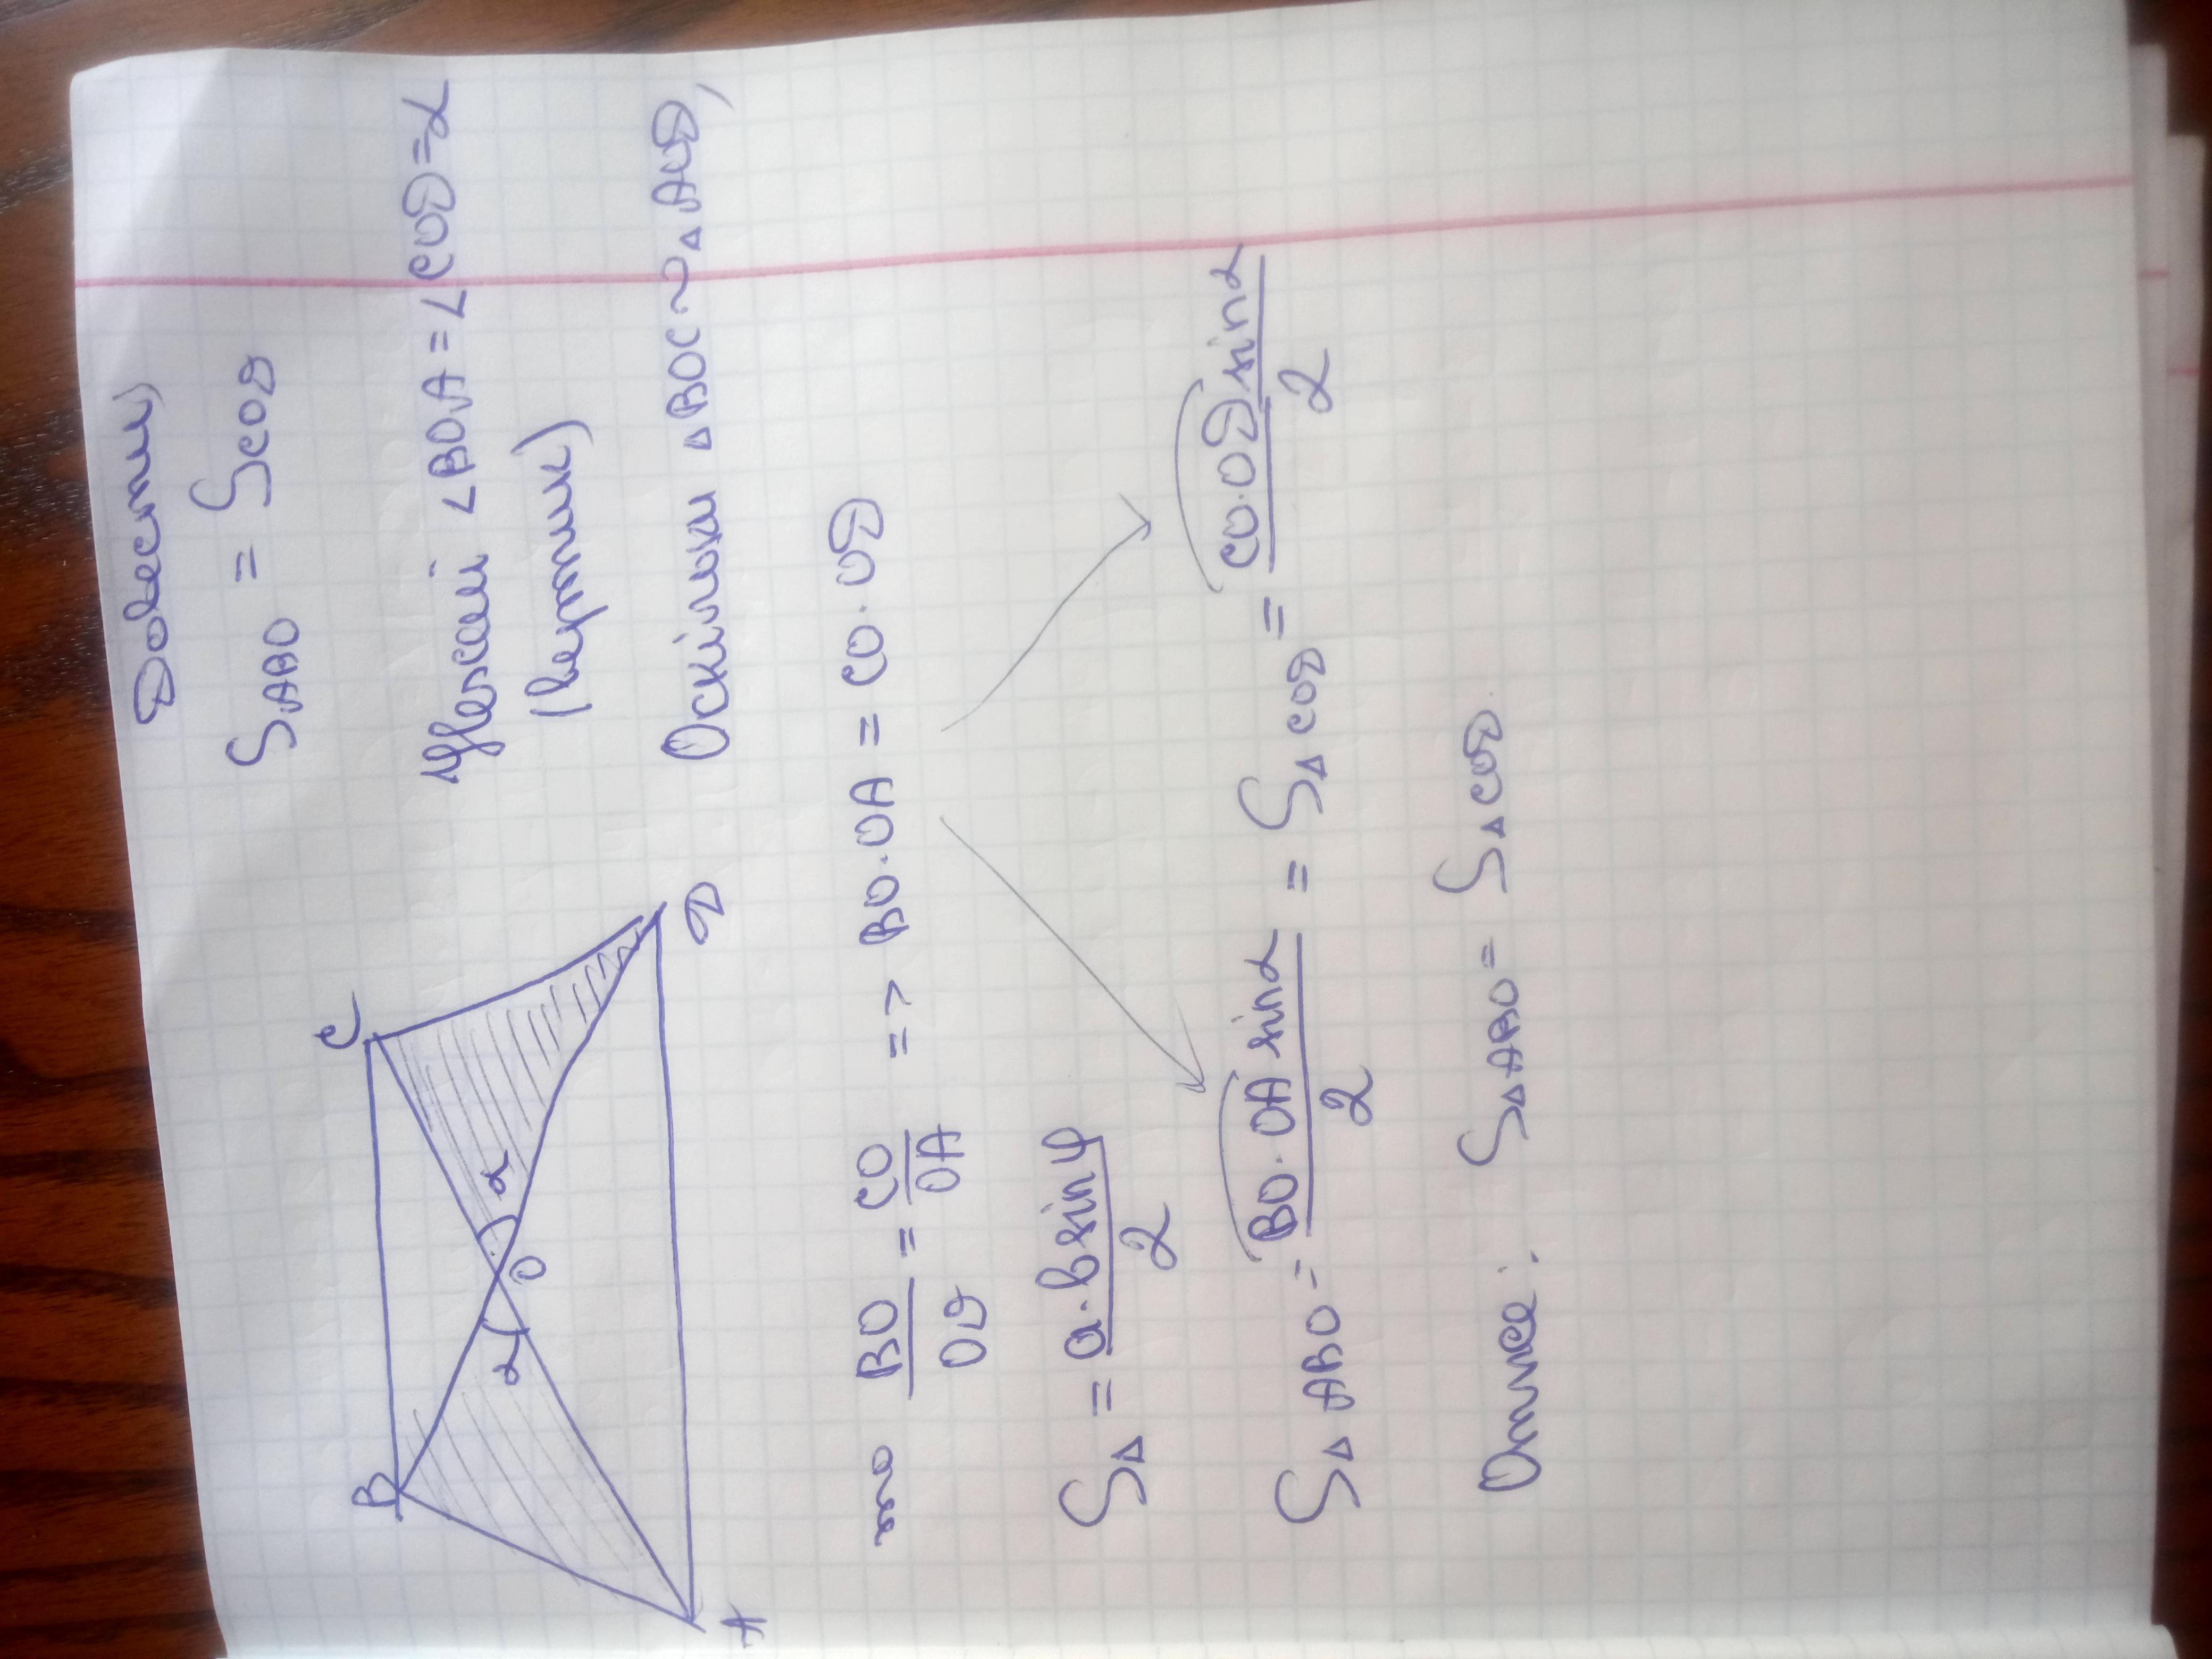 Довести
S ABO = S COD
Нехай ∠BOA = ∠COD = α
(верт.)
Оскільки △BOC ~ △AOD,
B C
α O α
A D
то BO/OD = CO/OA => BO·OA = CO·OD
S△ = a·b sinφ/2
S△ABO = BO·OA sinα/2 = S△COD = CO·OD sinα/2
Отже: S△ABO = S△COD.